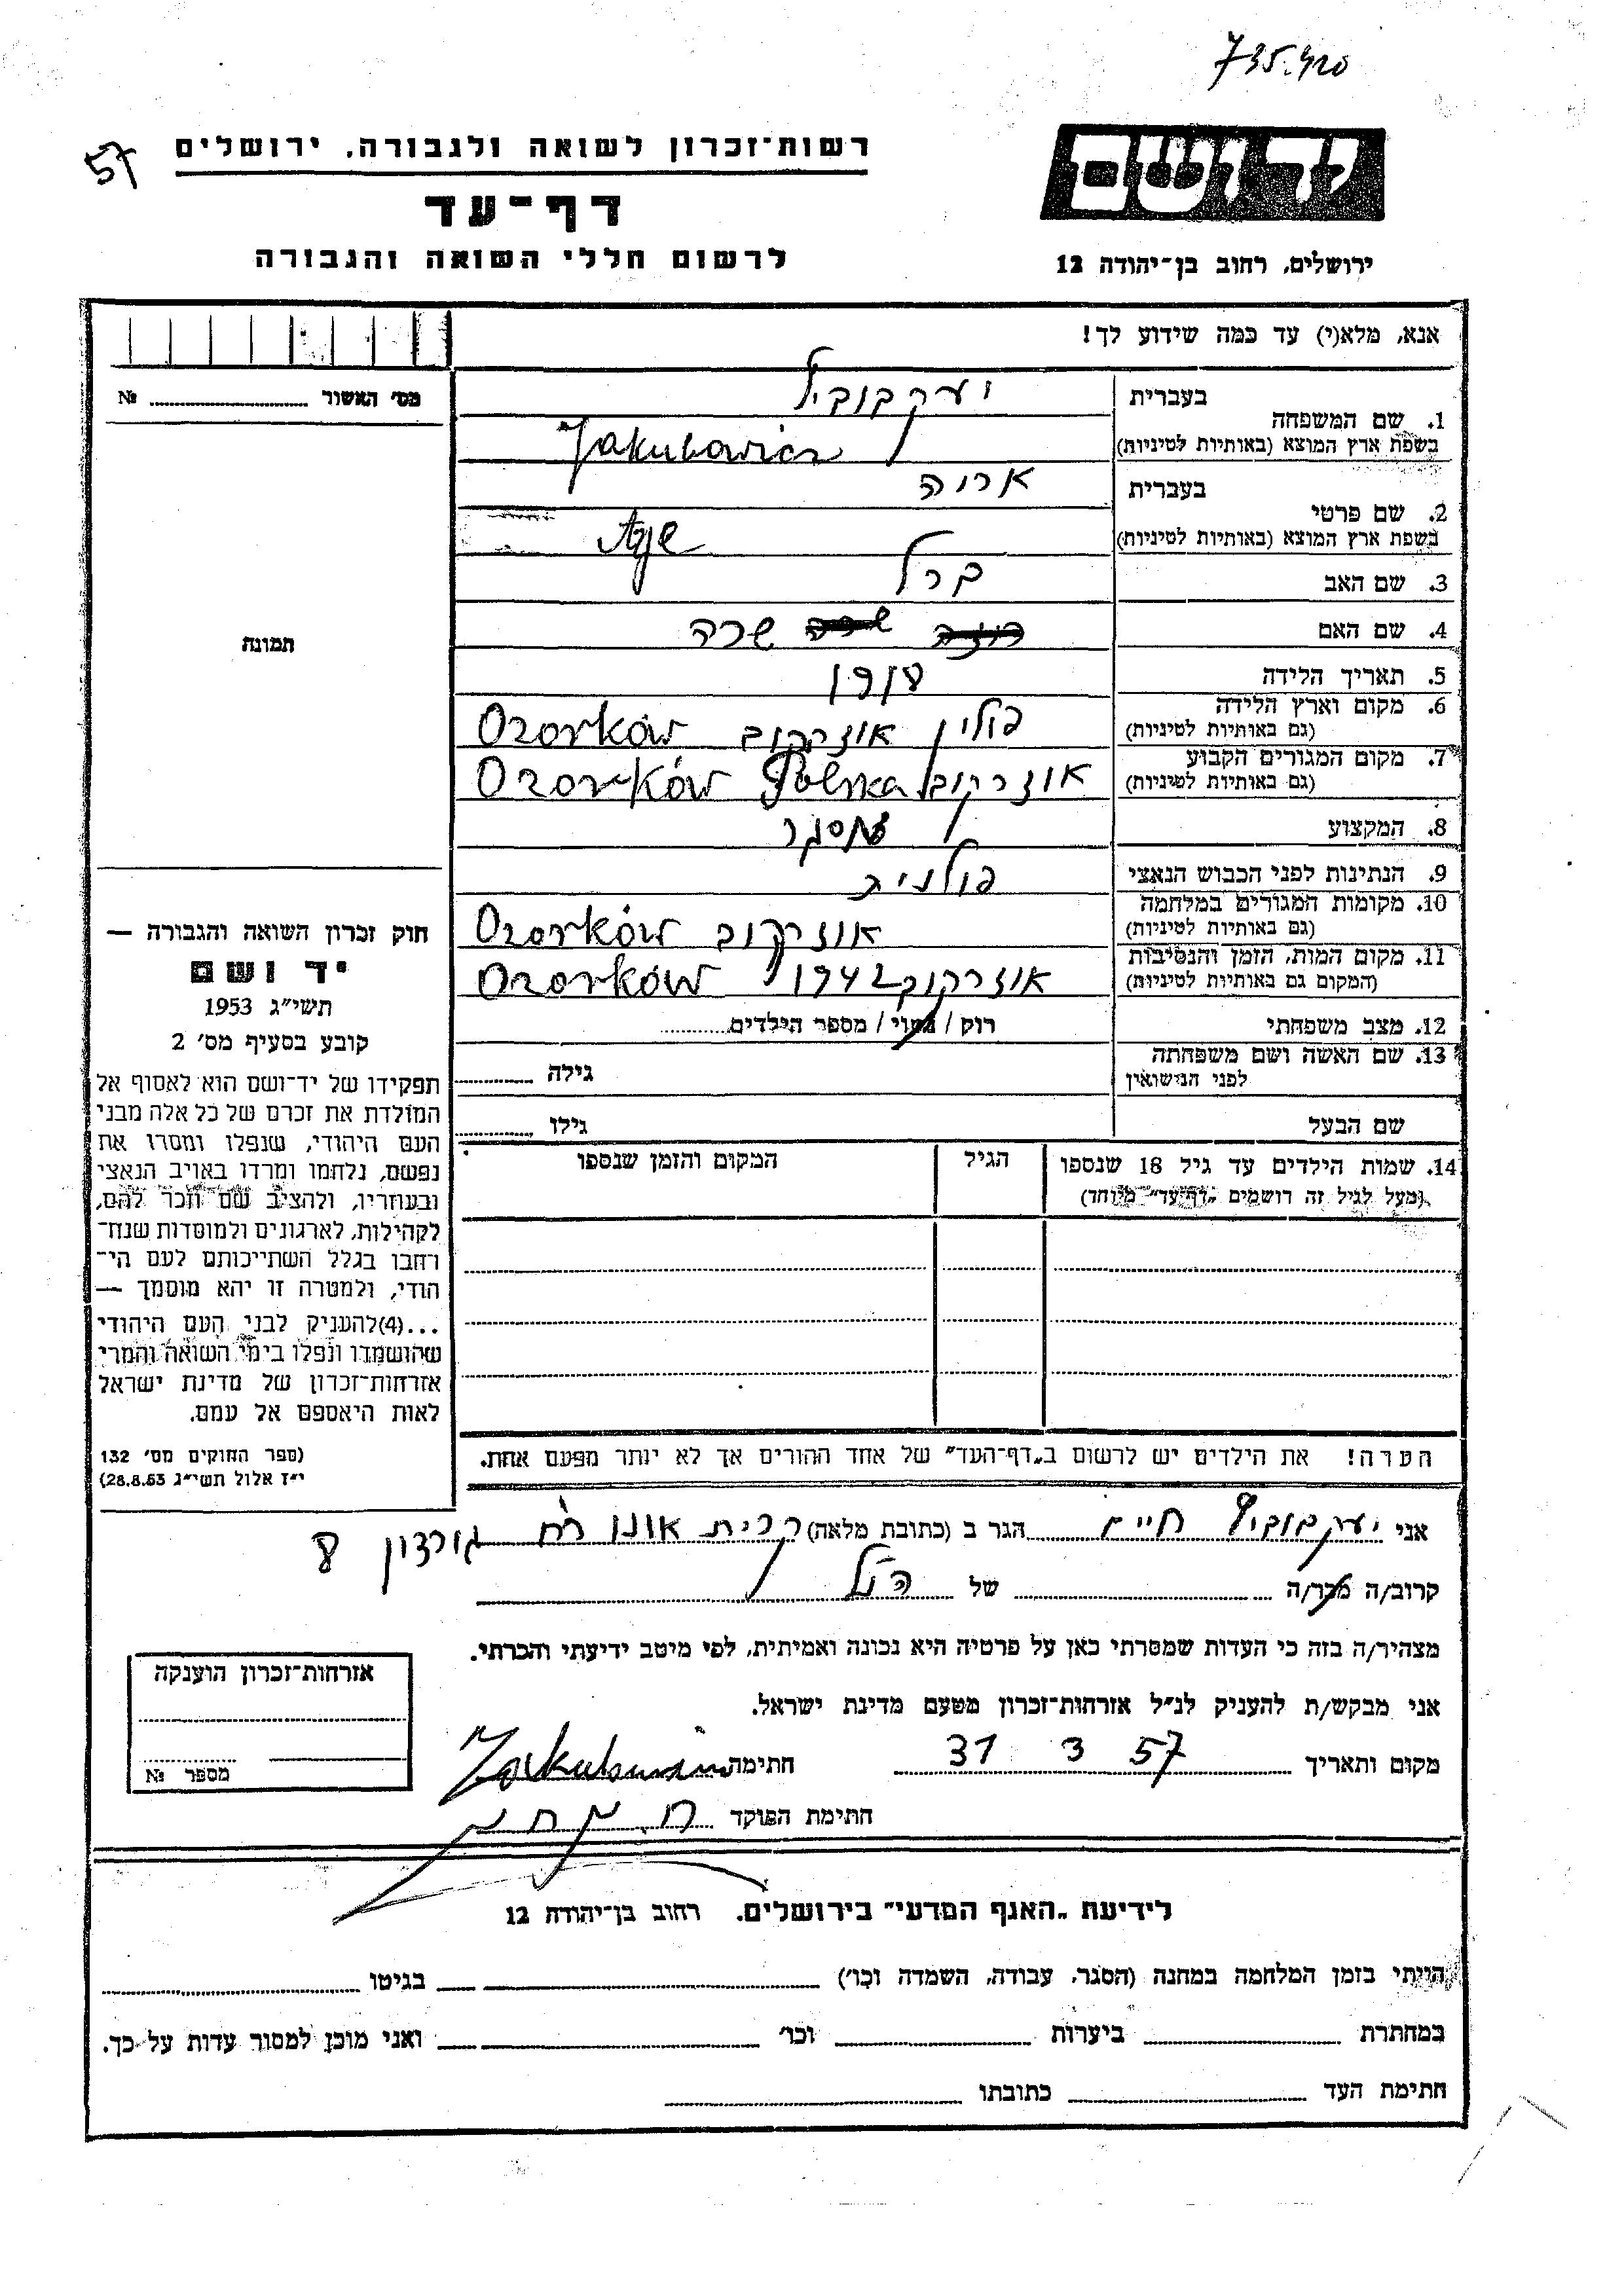 735.420
57
רשות־זכרון לשואה ולגבורה, ירושלים
דף־עד
לרשום חללי השואה והגבורה
יד ושם
ירושלים, רחוב בן־יהודה 12
אנא, מלא(י) עד כמה שידוע לך!
מס׳ האשור № 
1. שם המשפחה
בעברית יעקבוביץ
בשפת ארץ המוצא (באותיות לטיניות) Jakubowicz
2. שם פרטי
בעברית אריה
בשפת ארץ המוצא (באותיות לטיניות)
3. שם האב ברל
4. שם האם שרה
5. תאריך הלידה
6. מקום וארץ הלידה
(גם באותיות לטיניות) פולין אוזרקוב Ozorków
7. מקום המגורים הקבוע
(גם באותיות לטיניות) אוזרקוב Ozorków Polska
8. המקצוע מסגר
9. הנתינות לפני הכבוש הנאצי פולנית
10. מקומות המגורים במלחמה
(גם באותיות לטיניות) אוזרקוב Ozorków
11. מקום המות, הזמן והנסיבות
(המקום גם באותיות לטיניות) אוזרקוב 1942 Ozorków
12. מצב משפחתי רוק / נשוי / מספר הילדים
13. שם האשה ושם משפחתה
לפני הנישואין גילה
שם הבעל גילו
14. שמות הילדים עד גיל 18 שנספו הגיל המקום והזמן שנספו
(מעל לגיל זה רושמים „דף־עד״ מיוחד)
הערה! את הילדים יש לרשום ב„דף־העד״ של אחד ההורים אך לא יותר מפעם אחת.
תמונה
חוק זכרון השואה והגבורה —
יד ושם
תשי״ג 1953
קובע בסעיף מס׳ 2
תפקידו של יד־ושם הוא לאסוף אל
המולדת את זכרם של כל אלה מבני
העם היהודי, שנפלו ומסרו את
נפשם, נלחמו ומרדו באויב הנאצי
ובעוזריו, ולהציב שם וזכר להם,
לקהילות, לארגונים ולמוסדות שנח־
רבו בגלל השתייכותם לעם הי־
הודי, ולמטרה זו יהא מוסמך —
...(4)להעניק לבני העם היהודי
שהושמדו ונפלו בימי השואה והמרי
אזרחות־זכרון של מדינת ישראל
לאות היאספם אל עמם.
(ספר החוקים מס׳ 132
י״ז אלול תשי״ג 28.8.53)
אני יעקבוביץ חיים הגר ב (כתובת מלאה) קרית אונו רח גורדון
קרוב/ה מכר/ה של הנ״ל
מצהיר/ה בזה כי העדות שמסרתי כאן על פרטיה היא נכונה ואמיתית, לפי מיטב ידיעתי והכרתי.
אני מבקש/ת להעניק לנ״ל אזרחות־זכרון מטעם מדינת ישראל.
מקום ותאריך 31 3 57 חתימה
חתימת הפוקד
אזרחות־זכרון הוענקה
מספר №
לידיעת „האגף המדעי״ בירושלים, רחוב בן־יהודה 12
הייתי בזמן המלחמה במחנה (הסגר, עבודה, השמדה וכו׳) בגיטו
במחתרת ביערות וכו׳ ואני מוכן למסור עדות על כך.
חתימת העד כתובתו